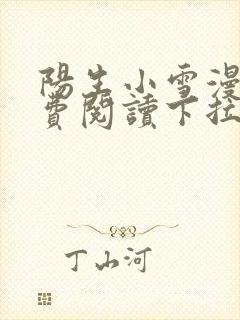 陽生小雪漫
費閱讀下拉
丁山河